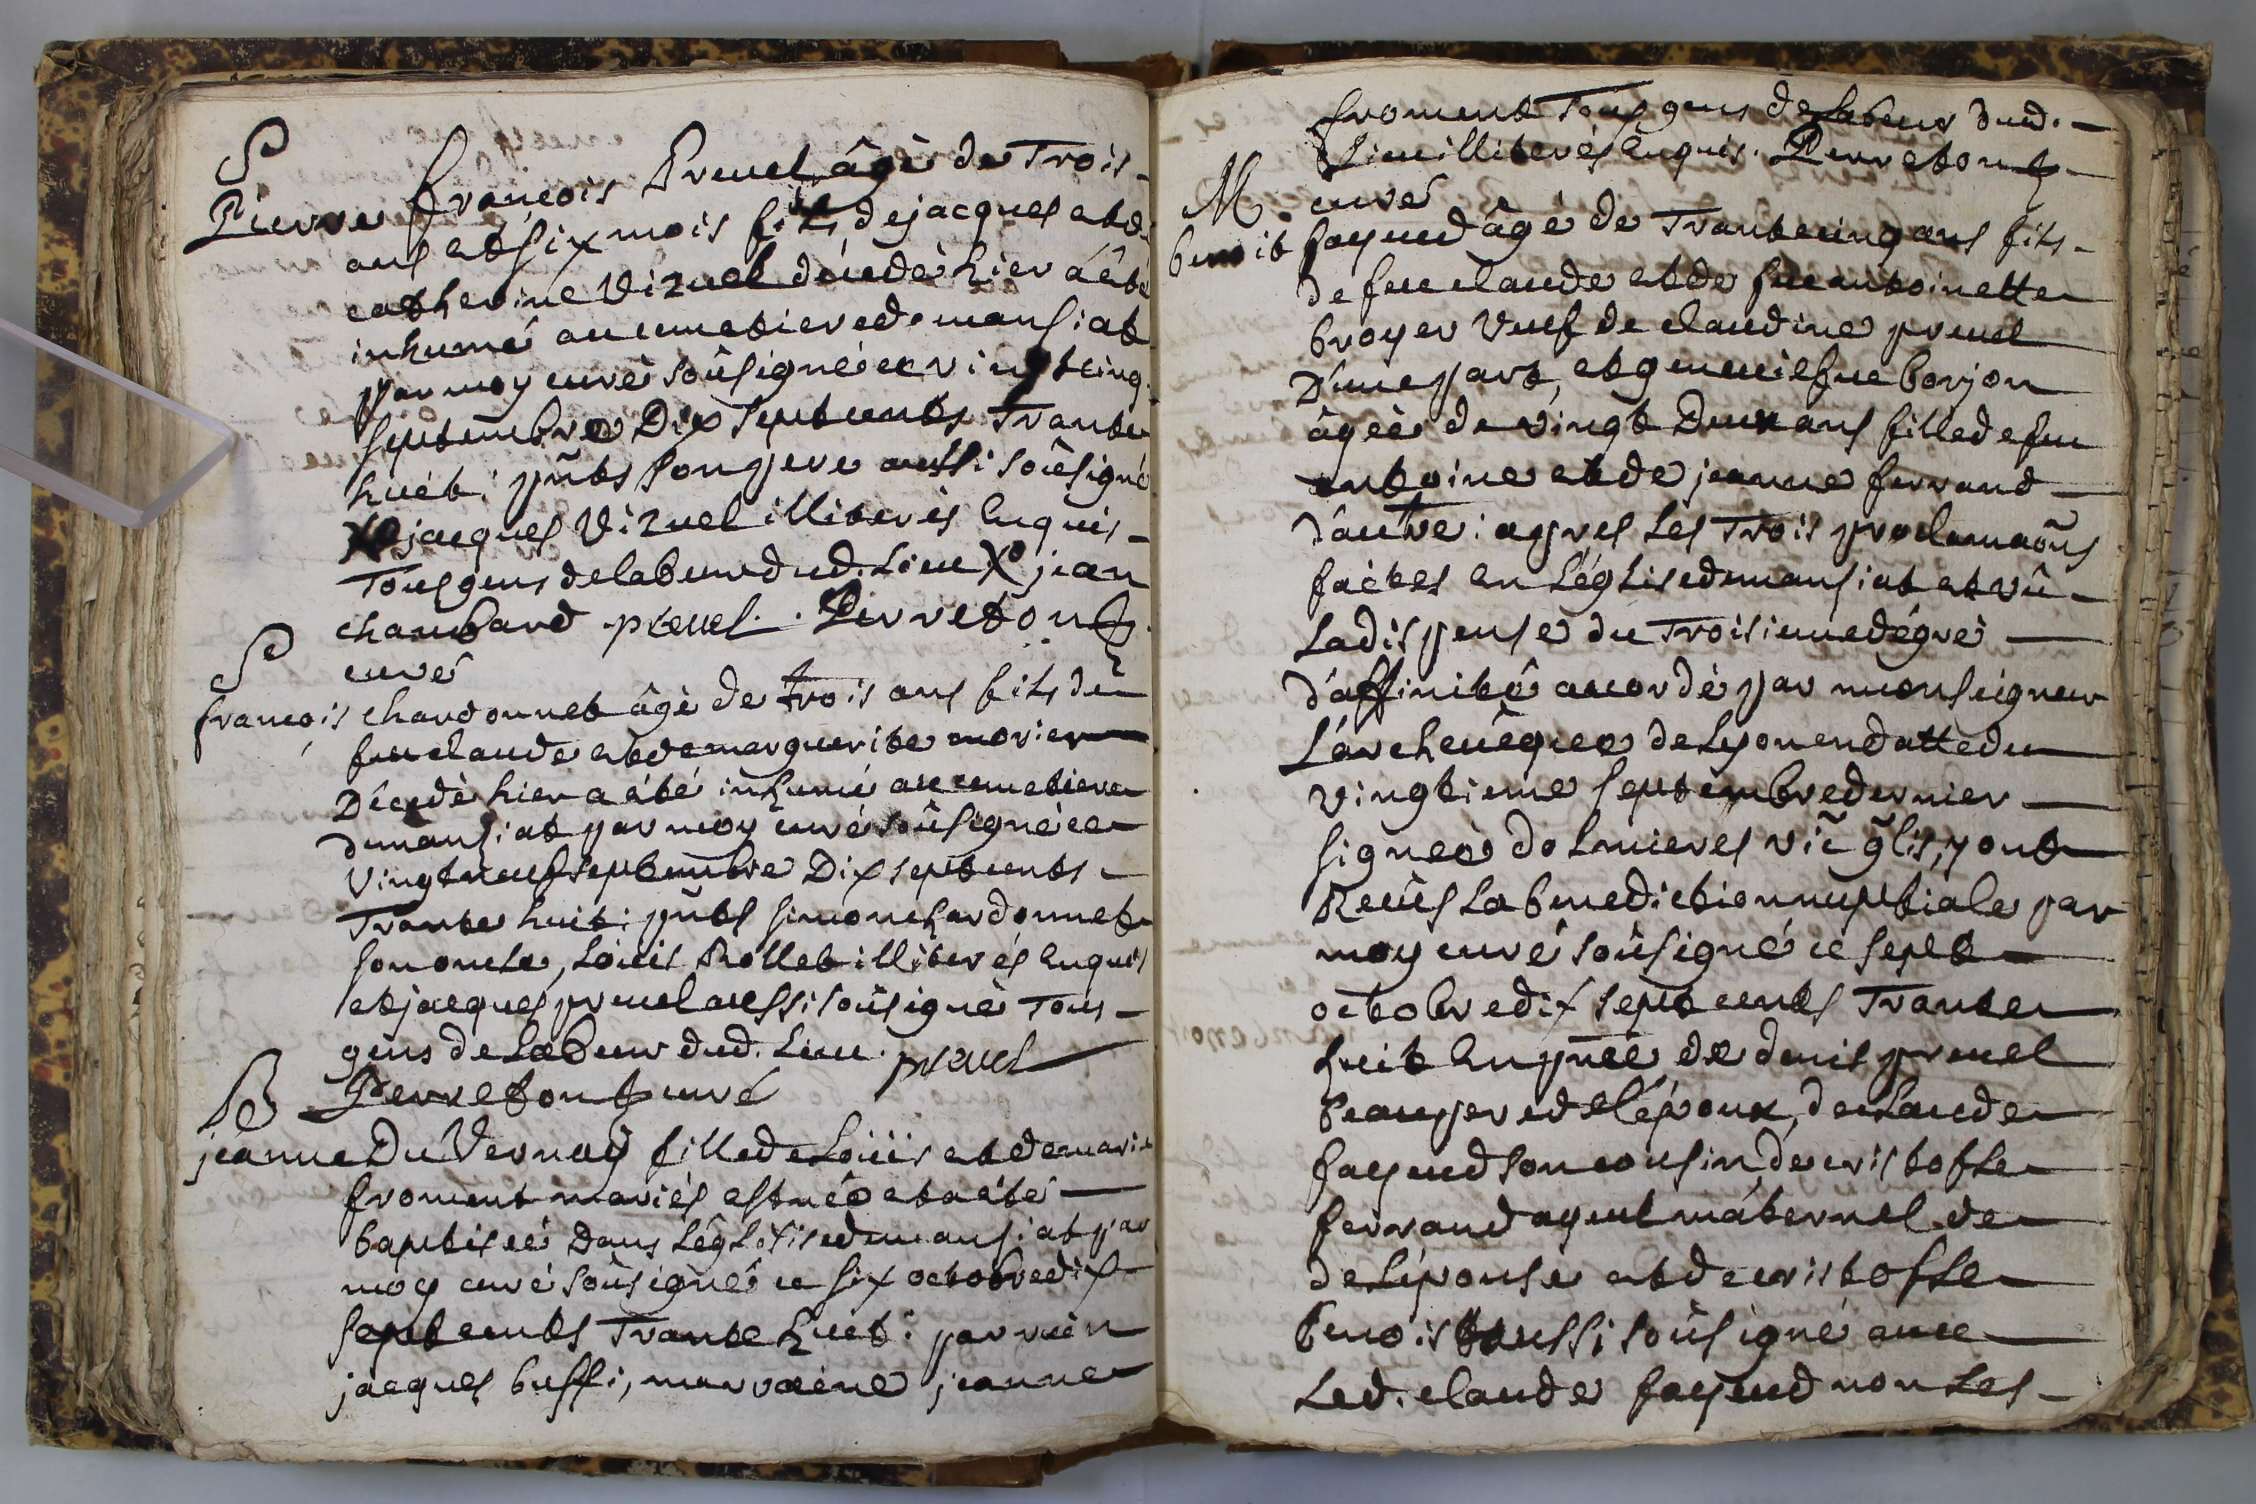 S
Pierre françois Preuel âgè de Trois
ans et six mois fils de jacques et de
catherine Vizuel décédè hier à été
inhumé au cimetiere de mansiat
par moy curè soûsigné ce vingtcinq
septembre Dix sept cents Trante
huét : pñts son pere aussi soûsigné
Xo jacques Vizuel illiterés Enquis
Tous gens de labeur dud. Lieu Xo jean
chambard . preuel . Perret ont
curé
S
françois chardonnet âgè de trois ans fils de
feu claude et de marguerite morier
Décédè hier a été inhumé au cimetiere
de mansiat par moy curé soûsigné ce
vingt neuf septembre Dix sept cents
Trante huit : pñts simon chardonnet
son oncle, Loüis Rollet illiterés Enquis
et jacques preuel aussi soûsigné Tous
gens de Labeur dud. Lieu . preuel
Perret ont curé
B
jeanne Du Vernay fille de Loüis et de marie
froment mariés est néé et a été
baptiséé Dans Léglise de mansiat par
moy curé soûsigné ce six octobre dix
sept cents Trante huét : parrein
jacques buffi, marraine jeanne
froment Tous gens de Labeur dud.
Lieu illiterés Enquis . Perret ont
curé
M.
benoit fayend âgè de Trante cinq ans fils
de feu claude et de feu antoinette
broyer Veuf de claudine preuel
D'une part, et geneviefue borjon
âgéé de vingt Deux ans fille de feu
antoine et de jeanne ferrand
d'autre : apres Les Trois proclamaõns
faites en Léglise de mansiat et vû
La dispense du Troisieme dégré
d'affinité accordé par monseigneur
L'archeuêque de Lyon en datte du
vingtieme septembre dernier
signéé dolmieres vic̃ g̃lis, y ont
Reçûs La benediction nuptiale par
moy curé soûsigné ce sept
octobre dix sept cents Trante
huit En pñcé de denis preuel
beaupere de l'époux, de claude
fayend son cousin, de cristofle
ferrand ayeul máternel de
de L'épouse et de cristofle
benoist aussi soûsigné auec
Led. claude fayend non Les